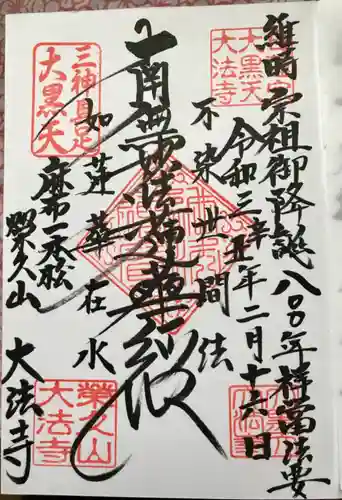 維時宗祖御降誕八〇〇年祥当法要
令和三辛丑年二月十六日
大黒天
大法寺
不染世間法
南無妙法蓮華経
如蓮華在水
三神具足
大黒天
麻布一本松
栄久山
大法寺
榮久山
大法寺